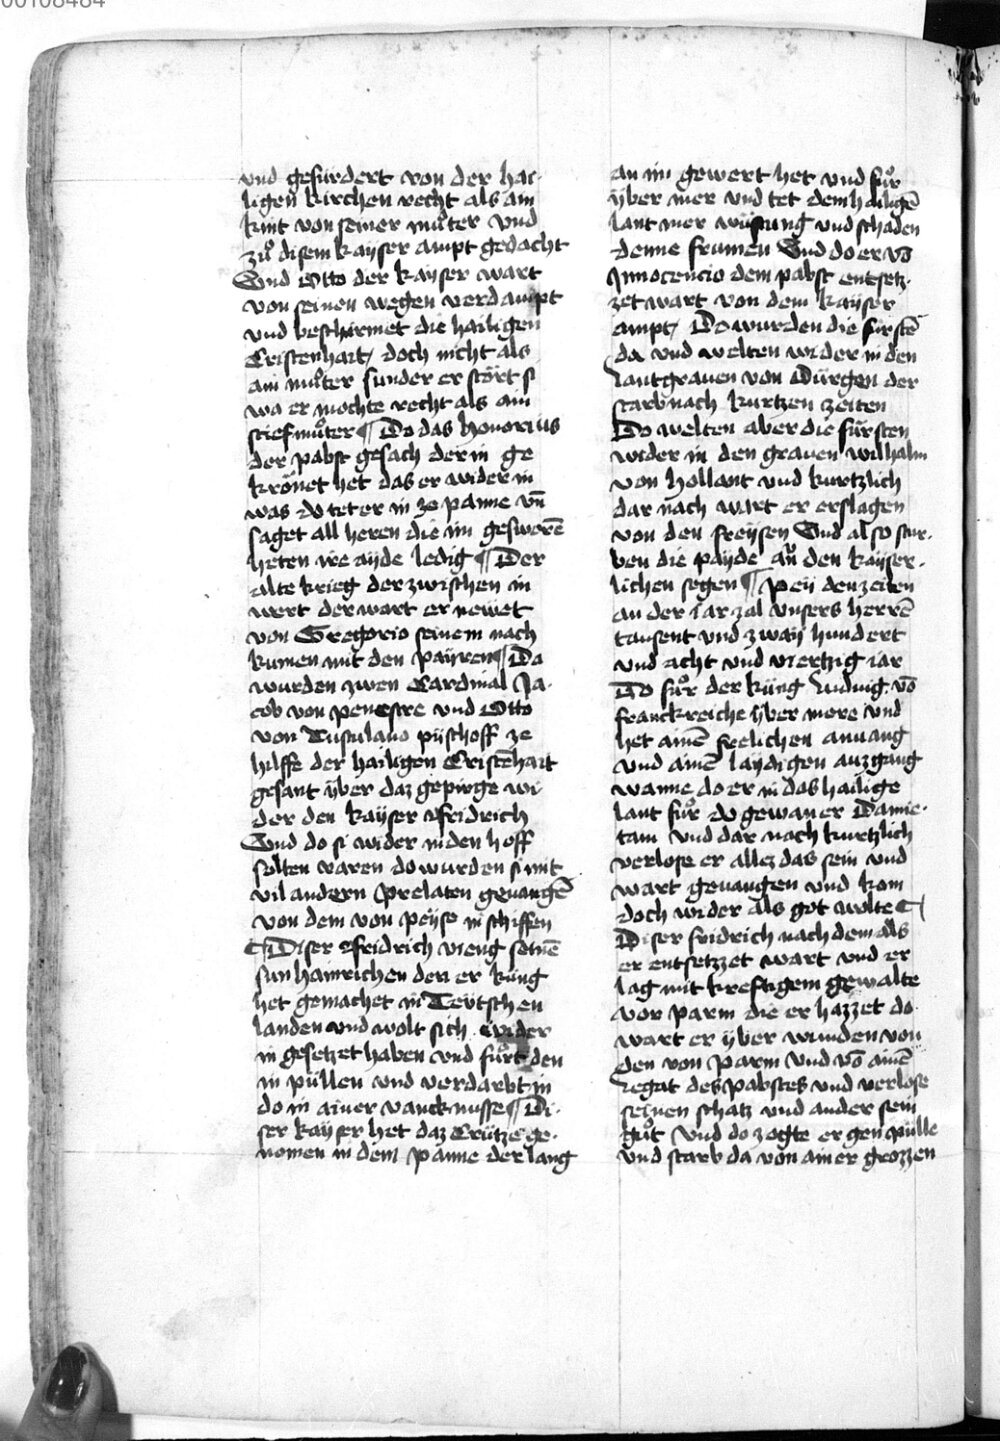 00108484
vnd gefürdert von der hai-
ligen kirchen recht als ain
kint von seiner můter vnd
zů disem kayser ampt gedacht
Vnd Otto der kayser wart
von seinen wegen verdampt
vnd beschirmet die hailigen
Cristenhait / doch nicht als
ain můter sunder er stört si
wa er mochte recht als ain
stiefmůter ¶ Do das honorius
der pabst gesach der in ge
krönet het das er wider in
was do tet er in ze panne vn̄
saget all heren die im gesworē
heten ire ayde ledig ¶ Der
alte krieg der zwischen in
wert der wart er newet
von Gregorio seinem nach
kumen mit den payren ¶ Da
wurden zwen Cardinal Ja-
cob von penestre vnd Otto
von Tusculano pyschoff ze
hilffe der hailigen Cristēhait
gesant vber daz gepirge wi
der den kayser Fridrich
Vnd do si wider in den hoff
solten varen do wurden si mit
vil andern prelaten gevangē
von dem von peyse in schiffen
¶ Diser Fridrich vieng seinē
sun hainrichen den er küng
het gemachet in Teutschen
landen vnd wolt sich wider
in gesetzet haben vnd fůrt den
in püllen vnd verdarbt in
do in ainer vancknusse ¶ Di-
ser kayser het daz Crütze ge-
nomen in dem panne der lang
an im gewert het vnd fůr
vber mer vnd tet dem hailigē
lant mer wüstung vnd schaden
denne frumen Vnd do er vō
Innocencio dem pabst entsetz-
zet wart von dem kayser
ampt / Do wurden die fürstē
da vnd welten wider in den
Lantgrauen von Dürgen der
starb nach kurtzen zeiten
Do welten aber die fürsten
wider in den grauen wilhalm
von hollant vnd kurtzlich
dar nach wart er erslagen
von den freysen Vnd also stur-
ben die payde an den kayser-
lichen segen ¶ Pey den zeiten
an der iar zal vnsers herrē
tausent vnd zway hundert
vnd acht vnd viertzig iar
Do fůr der küng Ludwig vō
franckreiche vber more vnd
het ainē frelichen anuang
vnd ainē laydigen auzgang
wanne do er in das hailige
lant fůr do gewan er Damie-
tam vnd dar nach kurtzlich
verlose er allez das sein vnd
wart gevangen vnd kom
doch wider als got wolte ¶
Diser fridrich nach dem als
er entsetzzet wart vnd er
lag mit kreftigem gewalte
vor parm die er hazzet do
wart er vber wunden von
den von parm vnd vō ainē
Legat des pabstes vnd verlose
seinen schatz vnd ander sein
gůt vnd do zogte er gen pülle
vnd starb da von ainer grozzen